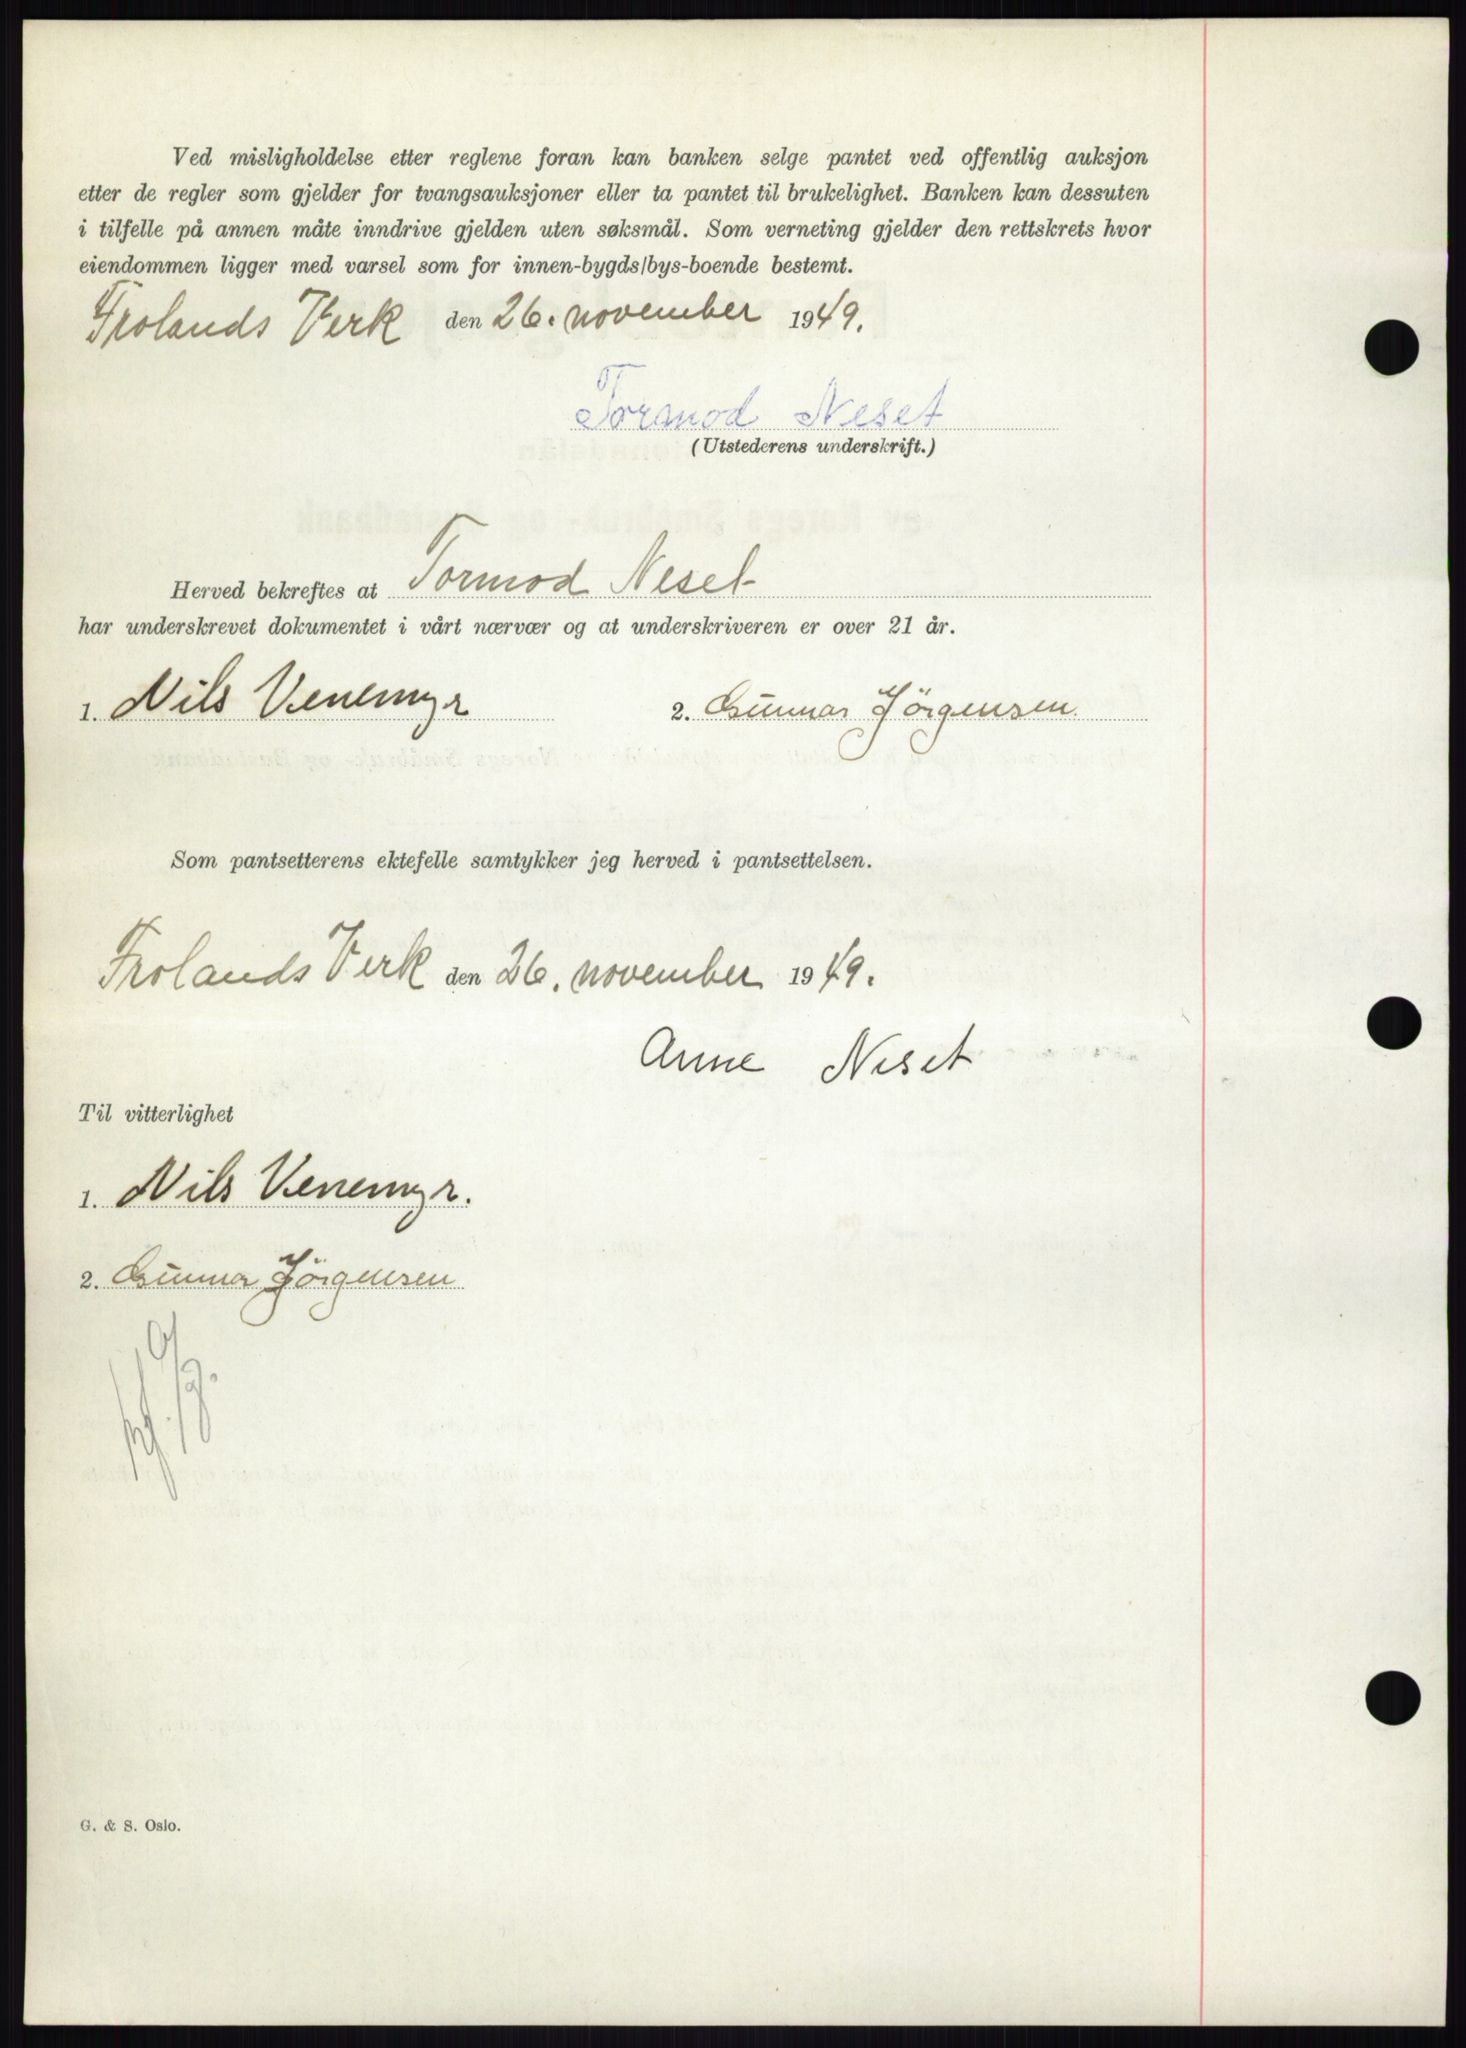 Ved misligholdelse etter reglene foran kan banken selge pantet ved offentlig auksjon
etter de regler som gjelder for tvangsauksjoner eller ta pantet til brukelighet. Banken kan dessuten
i tilfelle på annen måte inndrive gjelden uten søksmål. Som verneting gjelder den rettskrets hvor
eiendommen ligger med varsel som for innen-bygds/bys-boende bestemt.
Frolands Verk den 26. november 1949.
Tormod Neset
(Utstederens underskrift.)
Herved bekreftes at Tormod Neset
har underskrevet dokumentet i vårt nærvær og at underskriveren er over 21 år.
1. Nils Venemyr 2. Gunnar Jörgensen.
Som pantsetterens ektefelle samtykker jeg herved i pantsettelsen.
Frolands Verk den 26. november 1949.
Anne Neset
Til vitterlighet
1. Nils Venemyr.
2. Gunnar Jörgensen
G. & S. Oslo.